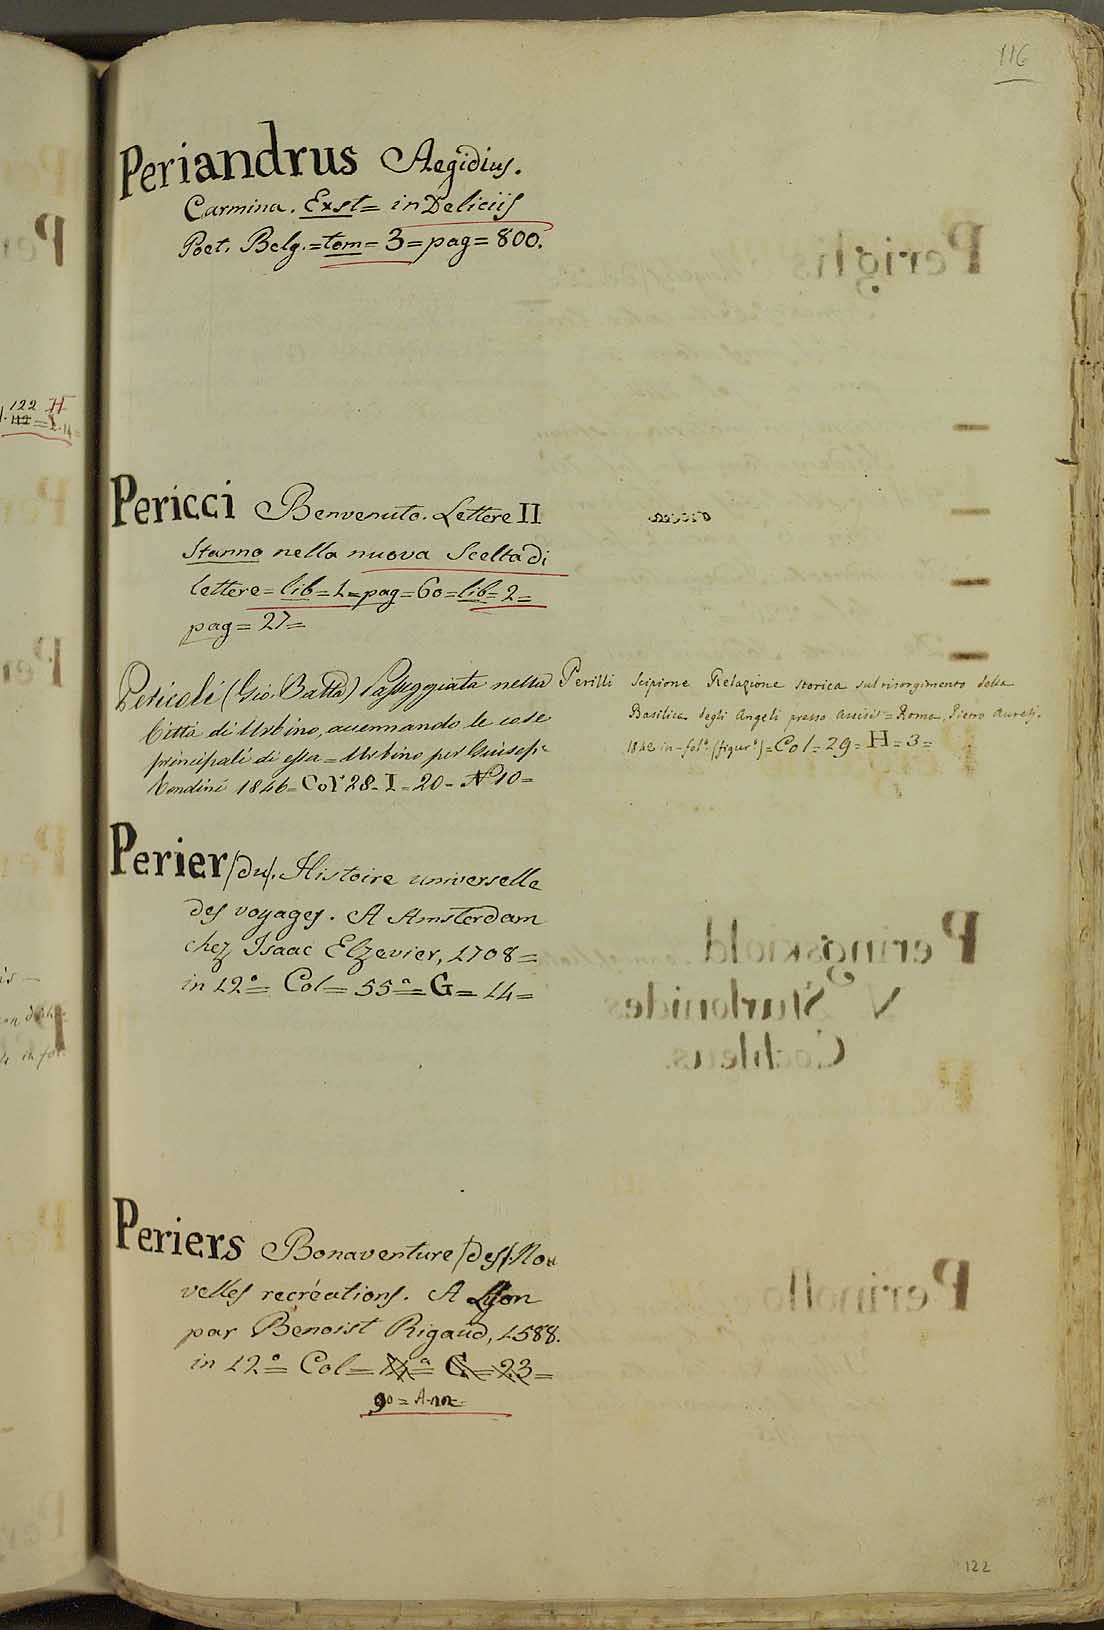 116
Periandrus Aegidius.
Carmina. Exst= in Deliciis
Poet. Belg.=tom=3=pag=800.
Pericci Benvenuto. Lettere II
Stanno nella nuova Scelta di
lettere=lib=1=pag=60=lib=2=
pag=27=
Pericoli (Gio. Batta) Passeggiata nella
Città di Urbino, accennando le cose
principali di essa=Urbino per Giusep.e
Rondini 1846=Col 28=I=20=N 10=
Perilli Scipione Relazione storica sul risorgimento della
Basilica degli Angeli presso Assisi=Roma, Pietro Aurelj.
1842 in-fol.o (figur.o)=Col=29=H=3=
Perier (du). Histoire universelle
des voyages. A Amsterdam
chez Isaac Elzevier, 1708=
in 12°= Col=55a=G=14=
Periers Bonaventure (des). Nou
velles recréations. A Lyon
par Benoist Rigaud, 1588.
in 12°= Col= G=23=
122
122 H